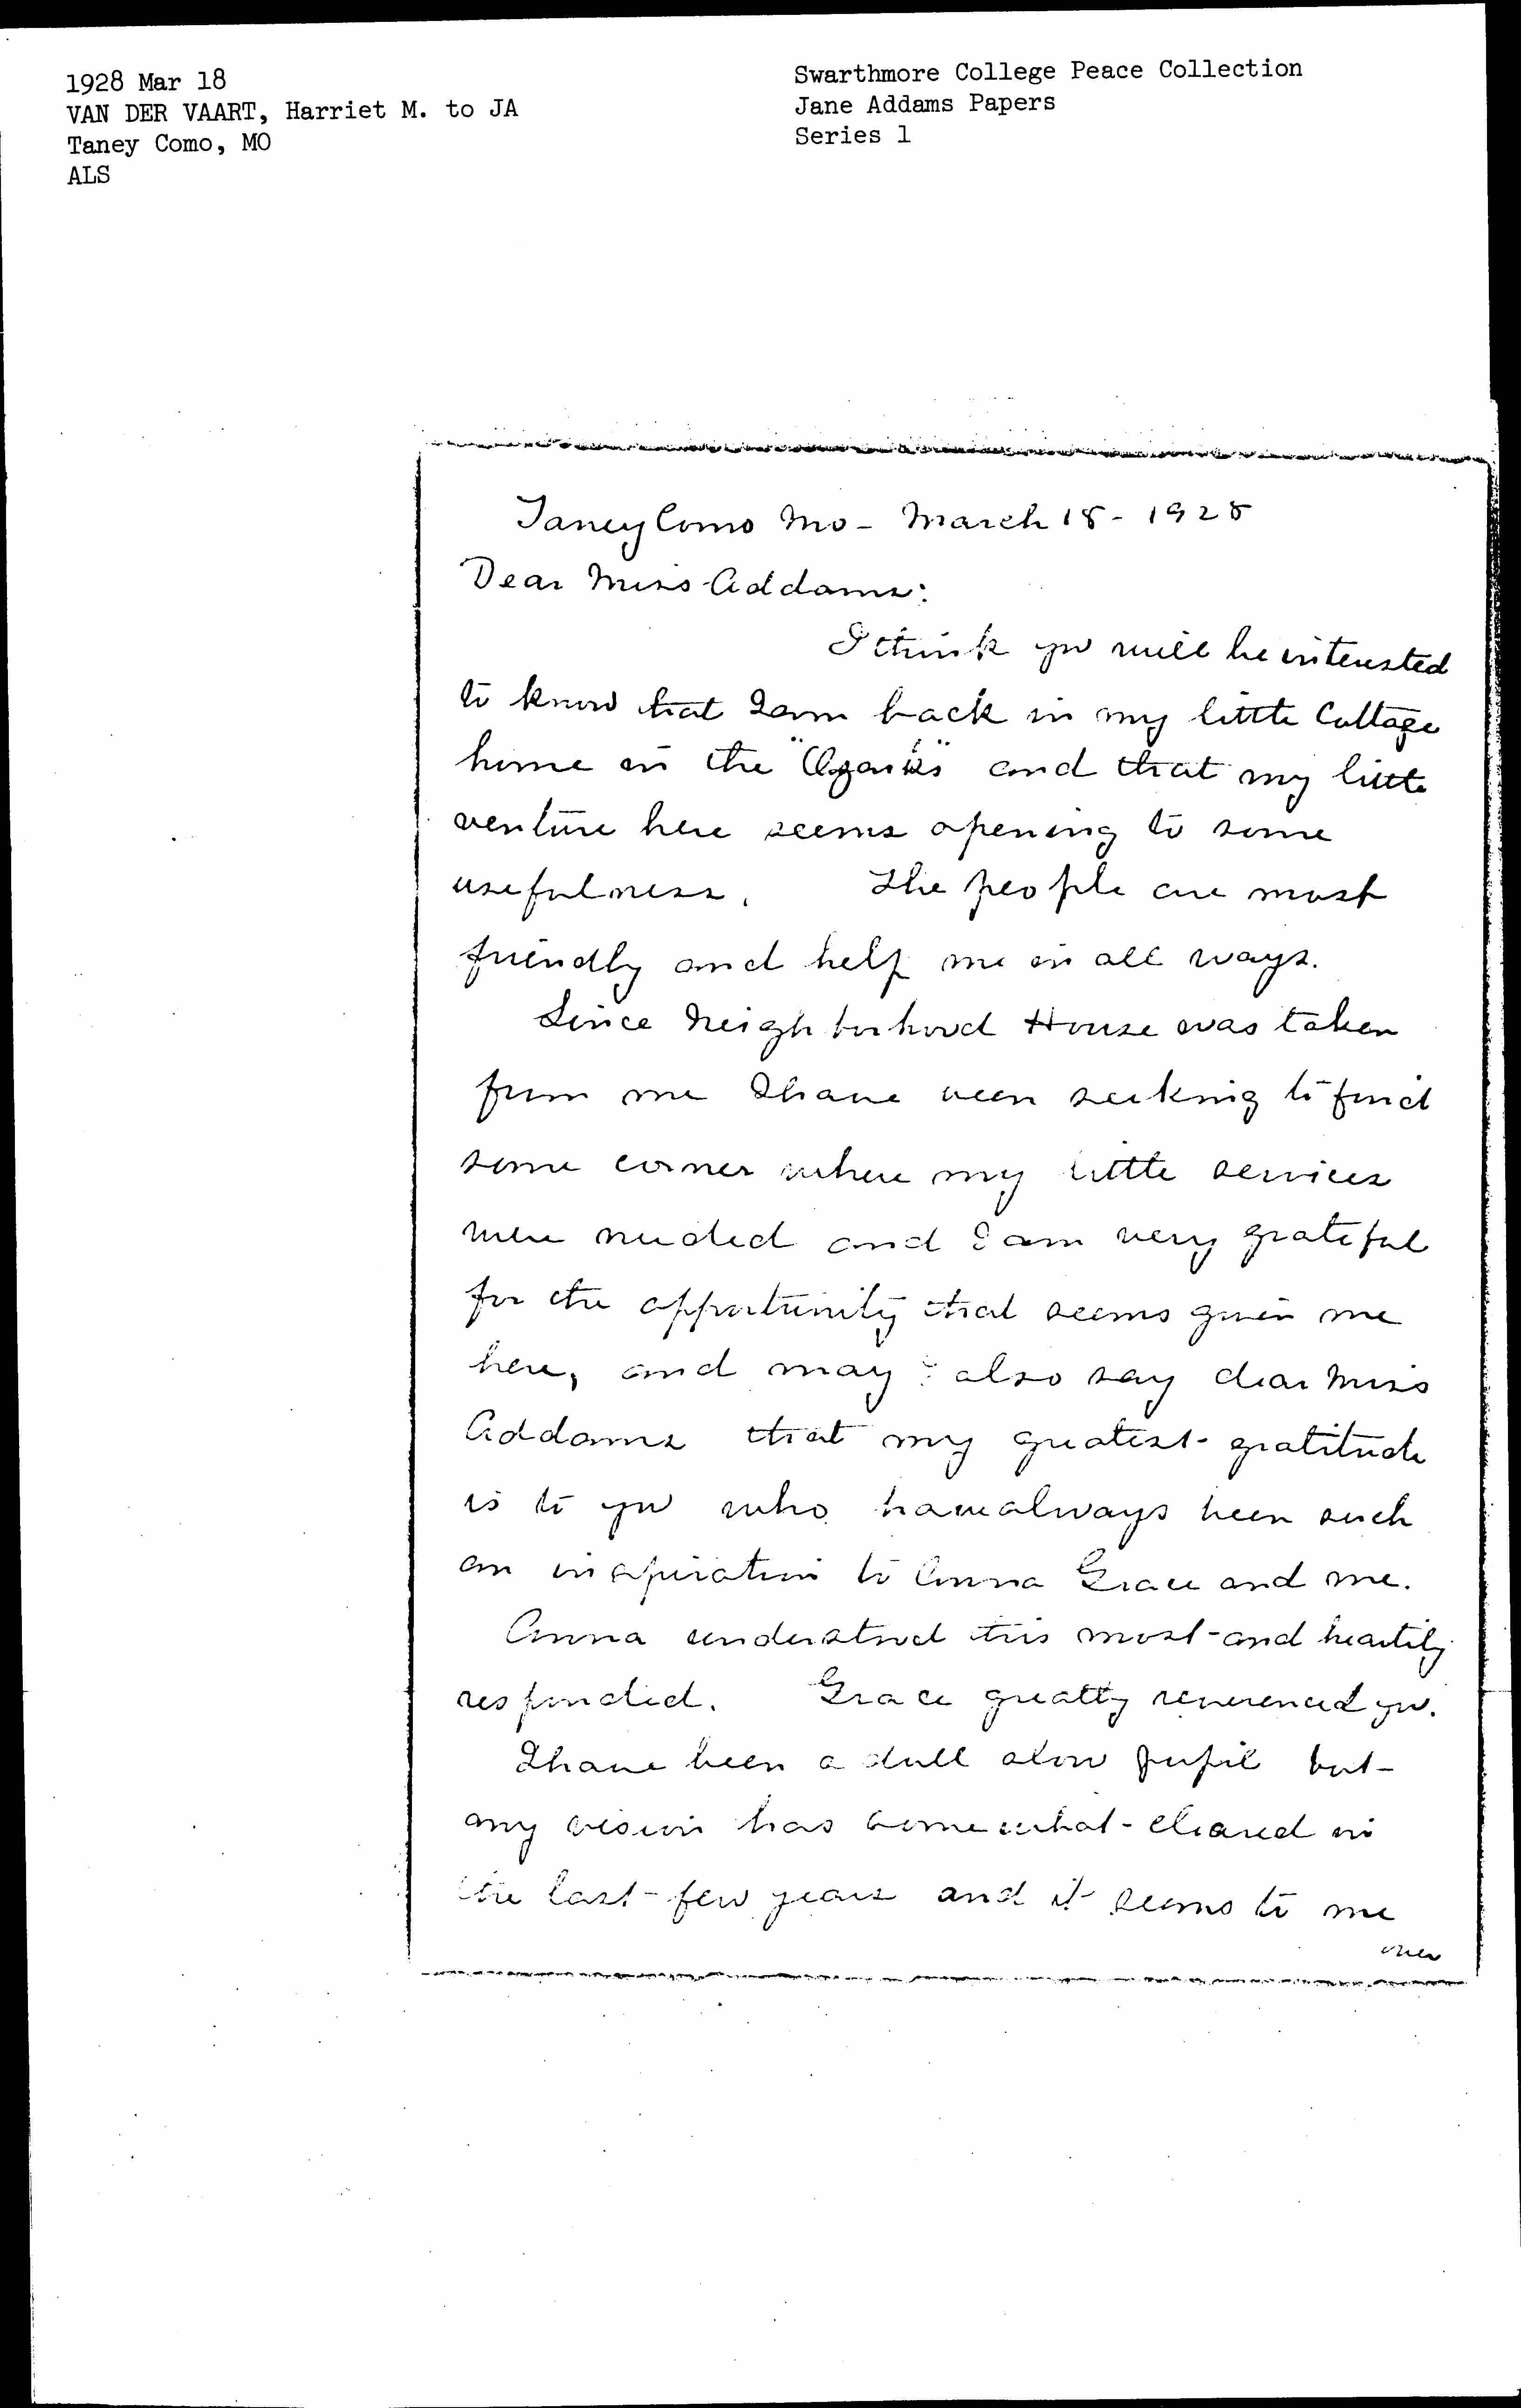 1928 Mar 18
VAN DER VAART, Harriet M. to JA
Taney Como, MO
ALS
Swarthmore College Peace Collection
Jane Addams Papers
Series 1
Taney Como Mo - March 18 - 1928
Dear Miss Addams:
I think you will be interested
to know that I am back in my little Cottage
home in the "Ozarks" and that my little
venture here seems opening to some
usefulness. The people are most
friendly and help me in all ways.
Since Neighborhood House was taken
from me I have been seeking to find
some corner where my little services
were needed and I am very grateful
for the opportunity that seems given me
here, and may I also say dear Miss
Addams that my greatest gratitude
is to you who have always been such
an inspiration to Anna Grace and me.
Anna understood this most and heartily
responded. Grace greatly reverenced you.
I have been a dull slow pupil but
my vision has somewhat cleared in
the last few years and it seems to me
over